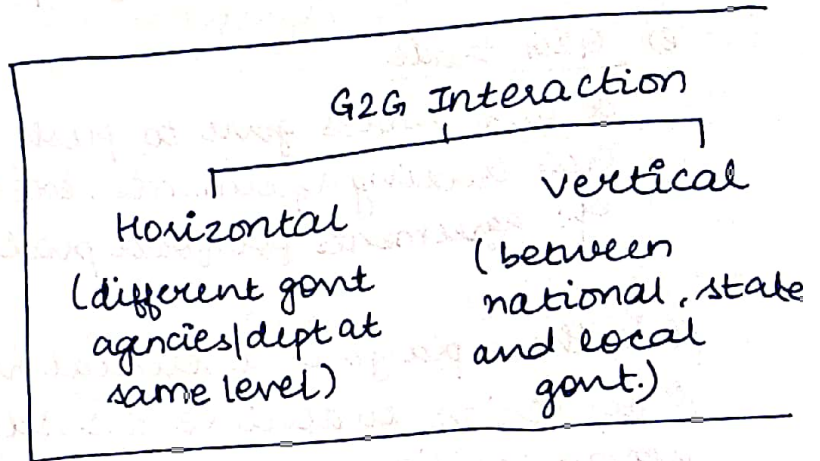 G2G Interaction
Horizontal
(different govt
agencies/dept at
same level)
vertical
(between
national, state
and local
govt.)